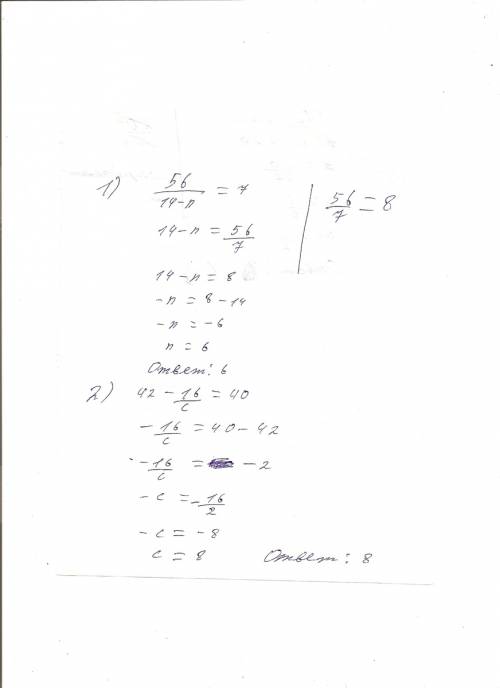 1) 56/(14-n) = 7
14-n = 56/7
14-n = 8
-n = 8-14
-n = -6
n = 6
Ответ: 6
56/7 = 8
2) 42 - 16/c = 40
-16/c = 40-42
-16/c = -2
-c = -16/2
-c = -8
c = 8
Ответ: 8